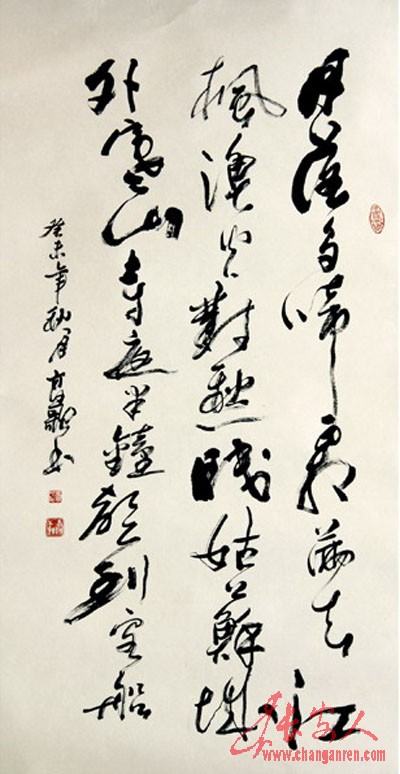 月落乌啼霜满天江
枫渔火對愁眠姑蘇城
外寒山寺夜半鐘聲到客船
癸未年秋月 书
长安人
www.changanren.com